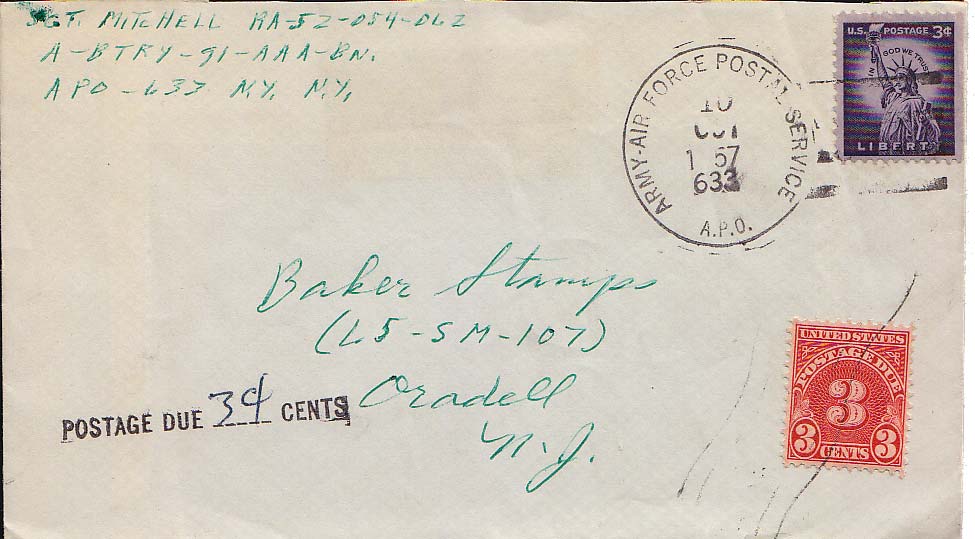 SGT. MITCHELL RA-52-054-062
A-BTRY-91-AAA-BN.
APO-633 N.Y. N.Y.
U.S. POSTAGE 3¢
IN GOD WE TRUST
LIBERTY
ARMY-AIR FORCE POSTAL SERVICE
10
OCT
1 57
633
A.P.O.
Baker Stamps
(L5-SM-107)
Oradell
N.J.
POSTAGE DUE 3¢ CENTS
UNITED STATES
POSTAGE DUE
3
3 CENTS 3